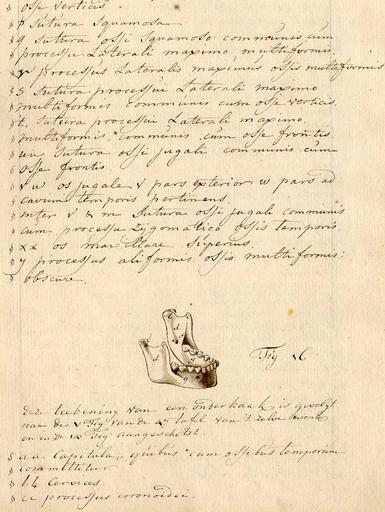 osse verticis
p sutura squamosa
q sutura ossi squamoso communis cum
processu Laterali maximo multiformis.
r processus Lateralis maximus ossis multiformis
s sutura processui Laterali maximo
multiformis communis cum osse verticis.
t. sutura processui Laterali maximo.
multiformis communis cum osse frontis.
uu sutura ossi jugali communis cum
osse frontis
v w os jugale v pars exterior w pars ad
cavum temporis pertinens.
inter v & m sutura ossi jugali communis
cum processu Zygomatico ossis temporis.
xx os maxillare superius.
y processus aliformis ossis multiformis:
obscure.
Fig 16
deze teekening van een onderkaak is gevolgt
naar de Fig van de tafel van 't zelve werk
en in de Fig aangeschetst.
aa Capitula, quibus cum ossebus temporum
committitur
bb Cervices.
cc processus coronoidei.